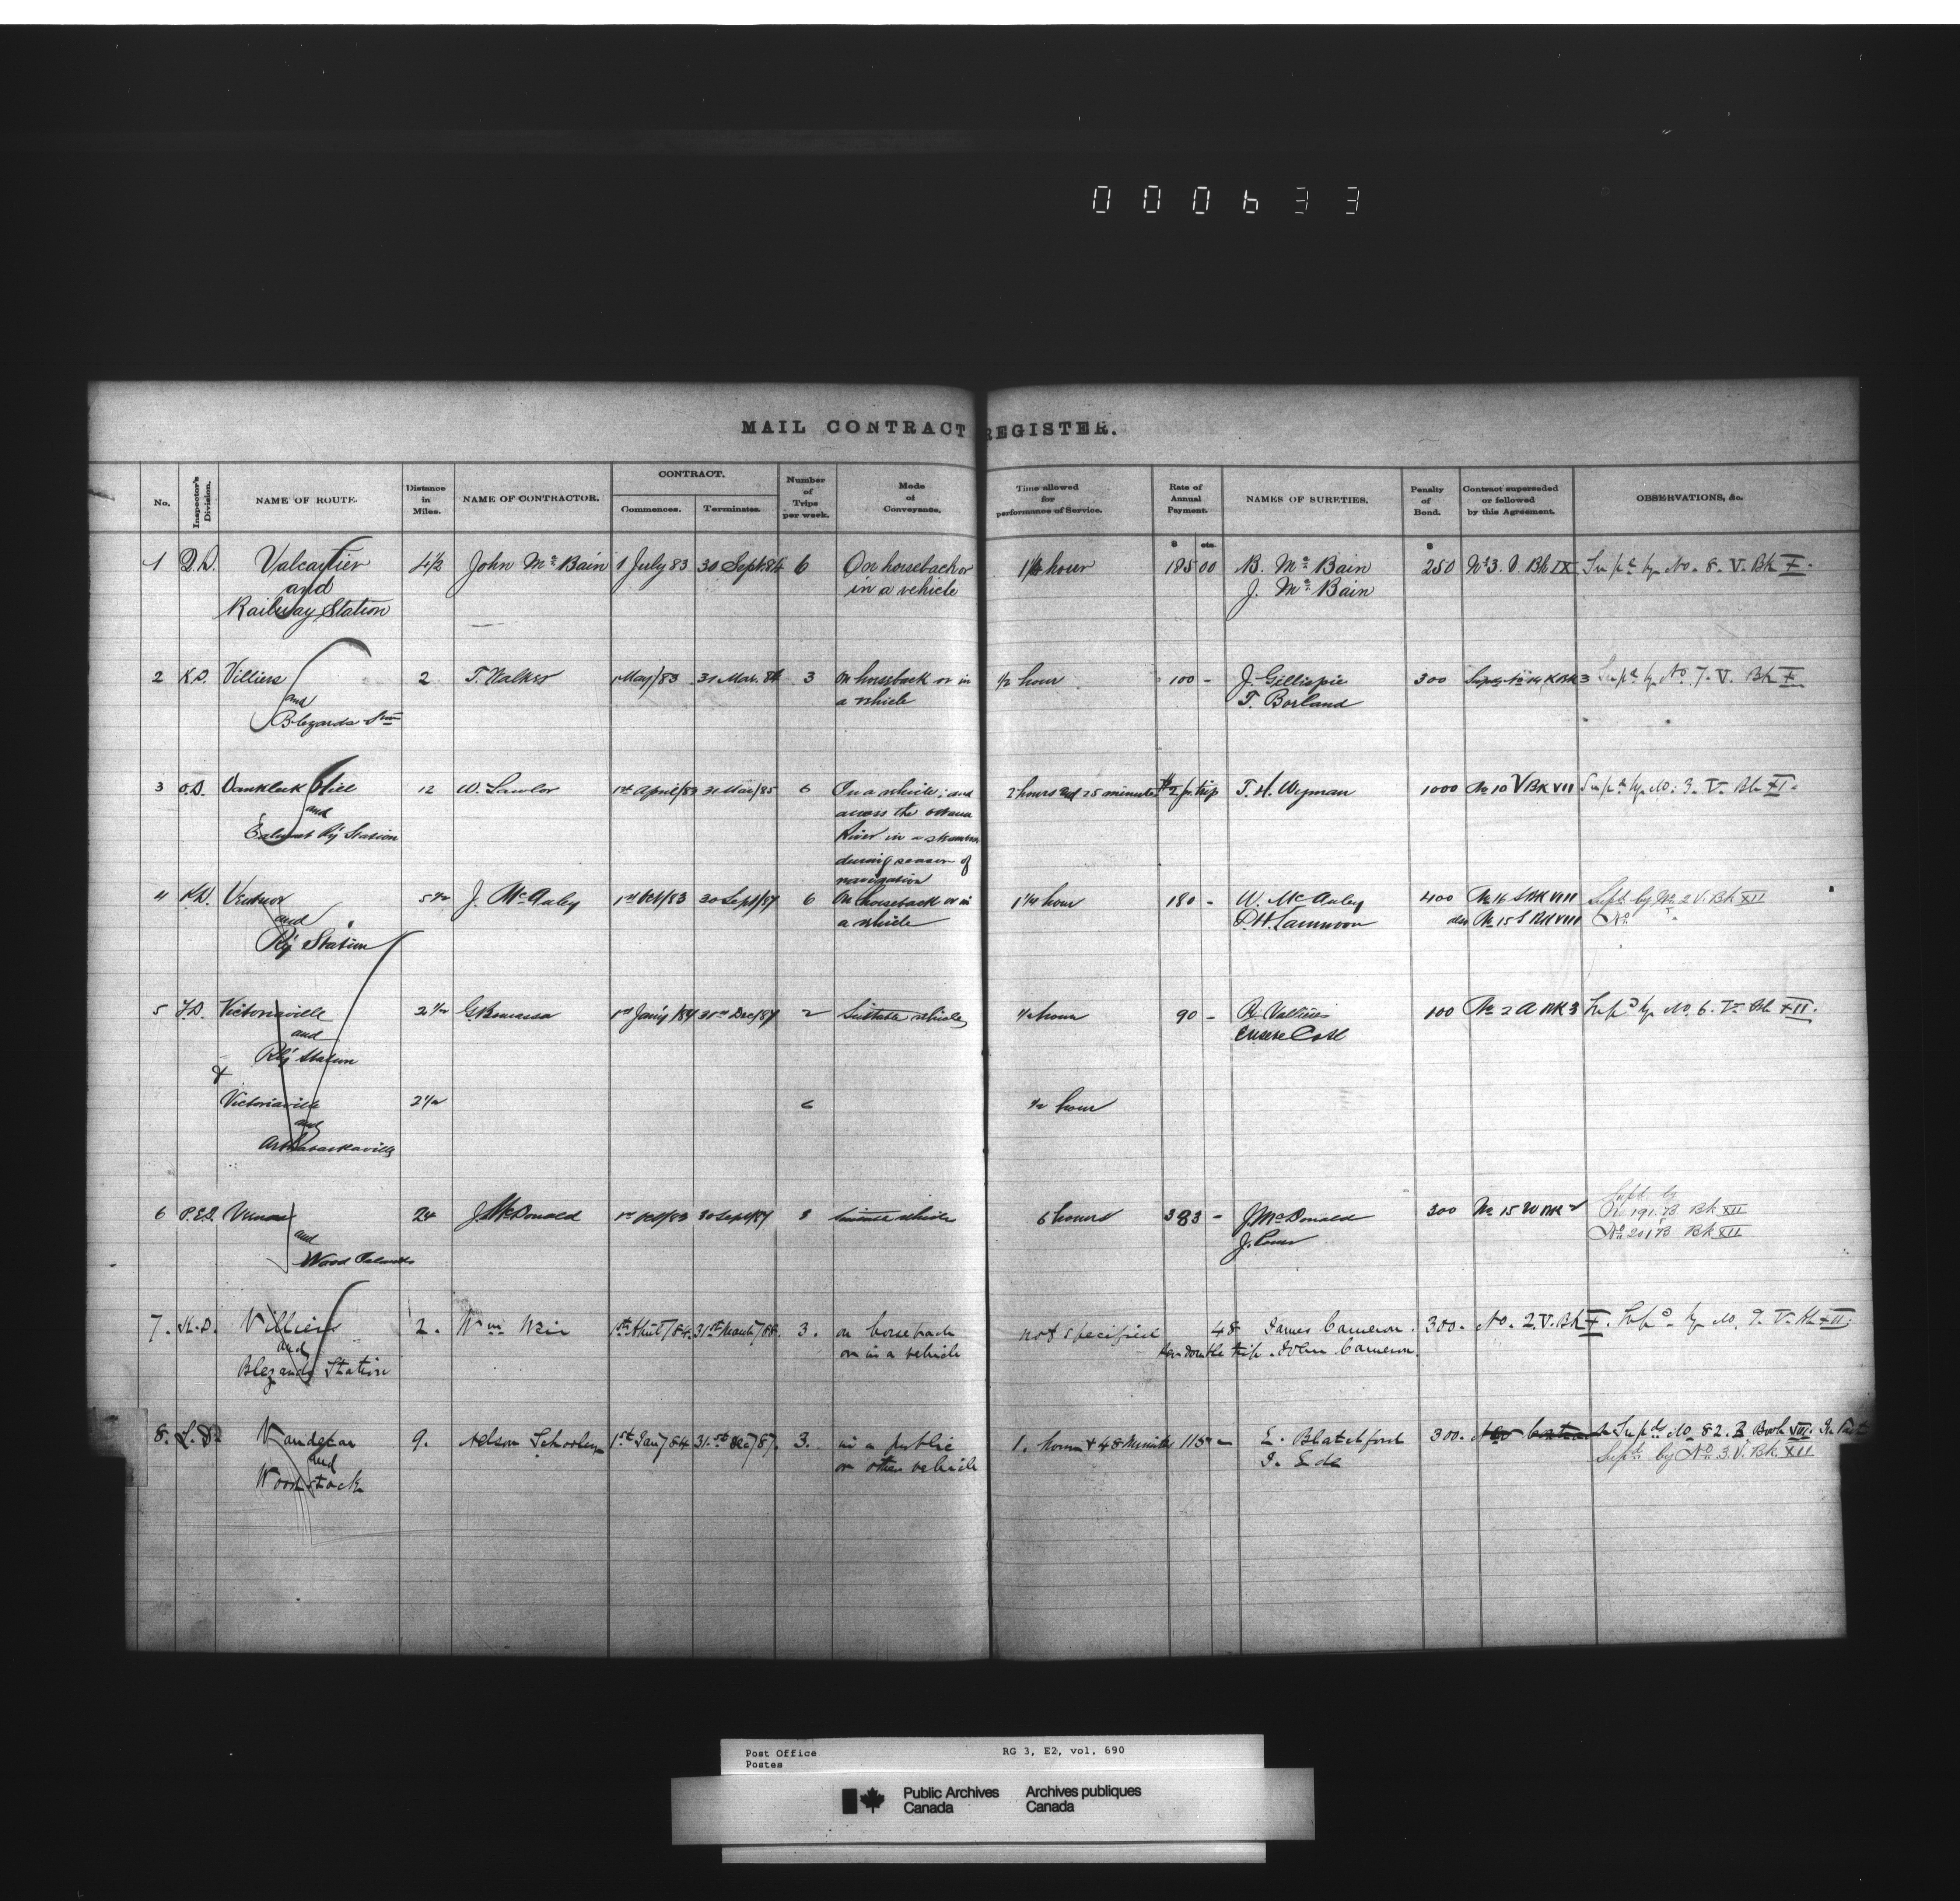 000633
MAIL CONTRACT REGISTER.
No. Inspector's Division. NAME OF ROUTE. Distance in Miles. NAME OF CONTRACTOR. CONTRACT. Commences. Terminates. Number of Trips per week. Mode of Conveyance. Time allowed for performance of Service. Rate of Annual Payment. NAMES OF SURETIES. Penalty of Bond. Contract superseded or followed by this Agreement. OBSERVATIONS, &c.
$ cts. $
1 Q.D. Valcartier 4½ John Mc Bain 1 July 83 30 Sept 84 6 On horseback or 1¼ hour 125 00 B. Mc Bain 250 No 3. V. Bk IX Supd by No. 8. V. Bk X.
and in a vehicle J. Mc Bain
Railway Station
2 K.D. Villiers 2 T. Walker 1 May/83 31 Mar. 84 3 On horseback or in ½ hour 100 - J. Gillispie 300 K Bk 3 Supd by No 7. V. Bk X
and a vehicle T. Borland
Blezards Stn
3 O.D. Vankleek Hill 12 W. Lawlor 1st April/83 31 Mar/85 6 In a vehicle; and 2 hours and 25 minutes $2 pr. trip T. H. Wyman 1000 No 10 V Bk VII Supd by No. 3. V. Bk XI.
and across the Ottawa
Calumet Ry Station River in a steamer
during season of
navigation
4 K.D. Ventnor 5½ J. McAuley 1st Oct/83 30 Sept/87 6 On horseback or in 1½ hour 180 - W. McAuley 400 No 16 S Bk VIII Supd. by No. 2 V. Bk XII
and a vehicle No 15 S Bk VIII
Ry Station
5 Victoriaville 2½ 1st Jan'y/84 31st Dec/87 2 Suitable vehicles ½ hour 90 - 100 No 2 A Bk 3 Supd by No. 6. V. Bk XII.
and
Ry Station
&
Victoriaville 2½ 6 ½ hour
and
Arthabaskaville
6 P.E.I. Vernon 24 J. McDonald 1st Oct/83 30 Sept/87 Suitable vehicle 6 hours 383 - J. McDonald 300 No 15 Supd. by
and No 191. B Bk XII
Wood Islands No 201 B Bk XII
7. K.D. Villiers 2. Wm Weir 1st April/84. 31st March/88. 3. on horseback not specified 48 James Cameron. 300. No. 2. V. Bk X. Supd by No. 9. V. Bk XII.
and or in a vehicle per double trip. John Cameron.
Blezards Station
8. L.D. Vandecar 9. Nelson Schooley 1st Jan/84 31st Dec/87. 3. in a public 1. hour & 48 Minutes 115 - E. Blatchford 300. Supds No. 82. B Book VIII. In Part
and or other vehicle Supd by No 3. V. Bk XII
Woodstock
Post Office RG 3, E2, vol. 690
Postes
Public Archives Archives publiques
Canada Canada